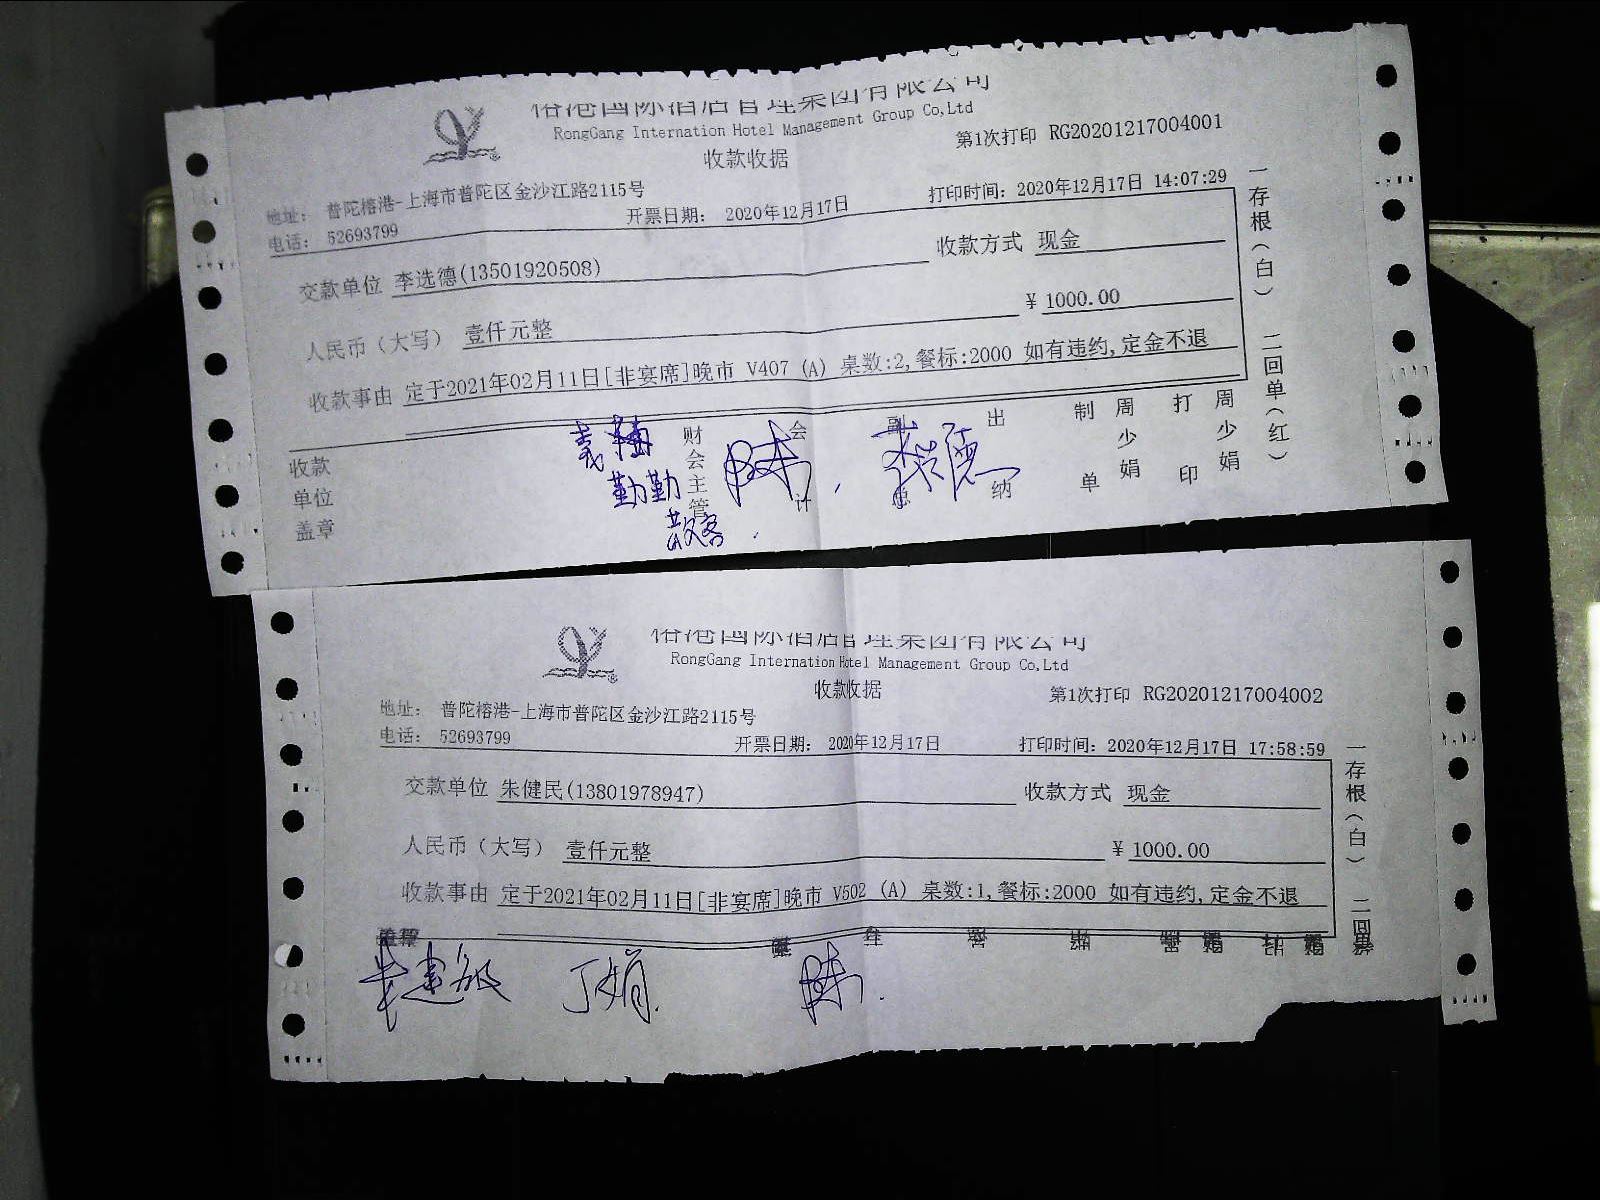 RongGang Internation Hotel Management Group Co,Ltd
收款收据
第1次打印 RG20201217004001
地址: 普陀榕港-上海市普陀区金沙江路2115号
电话: 52693799
开票日期: 2020年12月17日
打印时间: 2020年12月17日 14:07:29
交款单位 李选德(13501920508)
收款方式 现金
人民币（大写） 壹仟元整
¥ 1000.00
收款事由 定于2021年02月11日[非宴席]晚市 V407 (A) 桌数:2,餐标:2000 如有违约,定金不退
一存根(白) 二回单(红)
收款单位盖章
财会主管
会计
出纳
制单
周少娟
打印
周少娟
勤勤
散客
RongGang Internation Hotel Management Group Co,Ltd
收款收据
第1次打印 RG20201217004002
地址: 普陀榕港-上海市普陀区金沙江路2115号
电话: 52693799
开票日期: 2020年12月17日
打印时间: 2020年12月17日 17:58:59
交款单位 朱健民(13801978947)
收款方式 现金
人民币（大写） 壹仟元整
¥ 1000.00
收款事由 定于2021年02月11日[非宴席]晚市 V502 (A) 桌数:1,餐标:2000 如有违约,定金不退
一存根(白) 二回